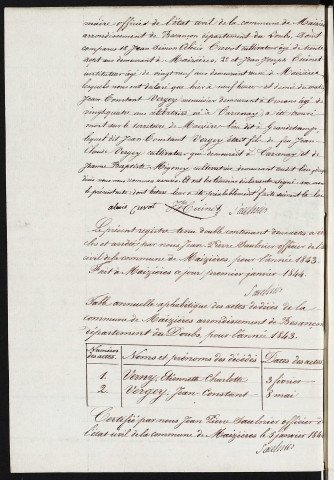 maire officier de l'état civil de la commune de Maizières
arrondissement de Besançon département du Doubs. Sont
comparus 1° Jean Simon Alexis Cuenot cultivateur âgé de
ans demeurant à Maizières, 2° et Jean Joseph Cuinet
instituteur âgé de vingt neuf ans demeurant aussi à Maizières
lesquels nous ont déclaré que hier à neuf heures et demie du matin
Jean Constant Vergey meunier demeurant à Ornans âgé de
cinquante ans à Tarcenay, a été trouvé
mort sur le territoire de Maizières lieu dit à
lequel dit Jean Constant Vergey était fils de feu Jean
Claude Vergey cultivateur qui demeurait à Tarcenay et de
Jeanne Baptiste Migonney cultivateur demeurant audit lieu
Et ont les témoins déclarants signé avec nous
le présent acte, dont lecture leur a été préalablement faite
alexis cuenot JJ Cuinet Saulnier
Le présent registre tenu double contenant deux actes a été
clos et arrêté par nous Jean Pierre Saulnier officier de l'état
civil de la commune de Maizières, pour l'année 1843.
Fait à Maizières ce jour premier janvier 1844.
Saulnier
Table annuelle alphabétique des actes de décès de la
commune de Maizières arrondissement de Besançon
département du Doubs, pour l'année 1843.
Numéros des actes. Noms et prénoms des décédés Dates des actes
1. Verny, Etiennette Charlotte 3 février
2. Vergey, Jean Constant 8 mai
Certifié par nous Jean Pierre Saulnier officier de
l'état civil de la commune de Maizières le 3 janvier 1844
Saulnier